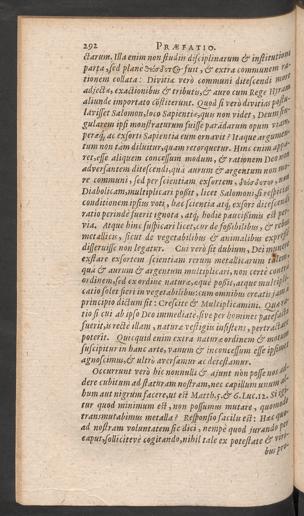 292 PRÆFATIO.
ctarum. Illa enim non studiis disciplinarum & institutione
parta, sed planè & extra communem ra-
tionem collata: Divitia verò communi ditescendi more
adjecta, exactionibus & tributis, & auro cum Rege Hyram
aliunde importato cōstiterunt. Quod si verò divitias postu-
lavisset Salomon, loco Sapientia, quis non videt, Deum sin-
gularem ipsi monstraturum fuisse paradarum opum viam,
peræq; ac exsorti Sapientia eum ornavit? Itaque argumen-
tum non tàm diluitur, quam retorquetur. Hinc enim appa-
ret, esse aliquem concessum modum, & rationem Deo non
adversantem ditescendi, quà aurum & argentum non mo-
re communi, sed per scientiam exsortem, non
Diabolicam, multiplicari possit, licet Salomoni, si respicias
conditionem ipsius voti, hæc scientia atq; exsors ditescendi
ratio perindè fuerit ignota, atq; hodiè paucissimis est per-
via. Atque hinc suspicari licet, cur de fossibilibus, & rebus
metallicis, sicut de vegetabilibus & animalibus expressè
disseruisse non legatur. Cui verò sit dubium, Dei munere
exstare exsortem scientiam rerum metallicarum talem,
quâ & aurum & argentum multiplicari, non certè contra
ordinem, sed ex ordine natura, æquè possit, atque multipli-
catio solet fieri in vegetabilibus: cum omnibus creatis jam à
principio dictum sit: Crescite & Multiplicamini. Qua ra-
tio si cui ab ipso Deo immediatè, sive per homines patefacta
fuerit, is rectè illam, natura vestigiis insistens, pertractare
poterit. Quicquid enim extra natura ordinem & motum
suscipitur in hanc arte, vanum & inconcessum esse ipsimet
agnoscimus, & ultrò aversamur ac detestamur.
Occurrunt verò hic nonnulli & ajunt non posse nos ad-
dere cubitum ad staturam nostram, nec capillum unum al-
bum aut nigrum facere, ut est Matth. 5. & Luc. 12. Si igi-
tur quod minimum est, non possumus mutare, quomodo
transmutabimus metalla? Responsio facilis est: Hæc quo-
ad nostram voluntatem sic dici, nempè quod jurando per
caput, sollicitevè cogitando, nihil tale ex potestate & viri-
bus pro-